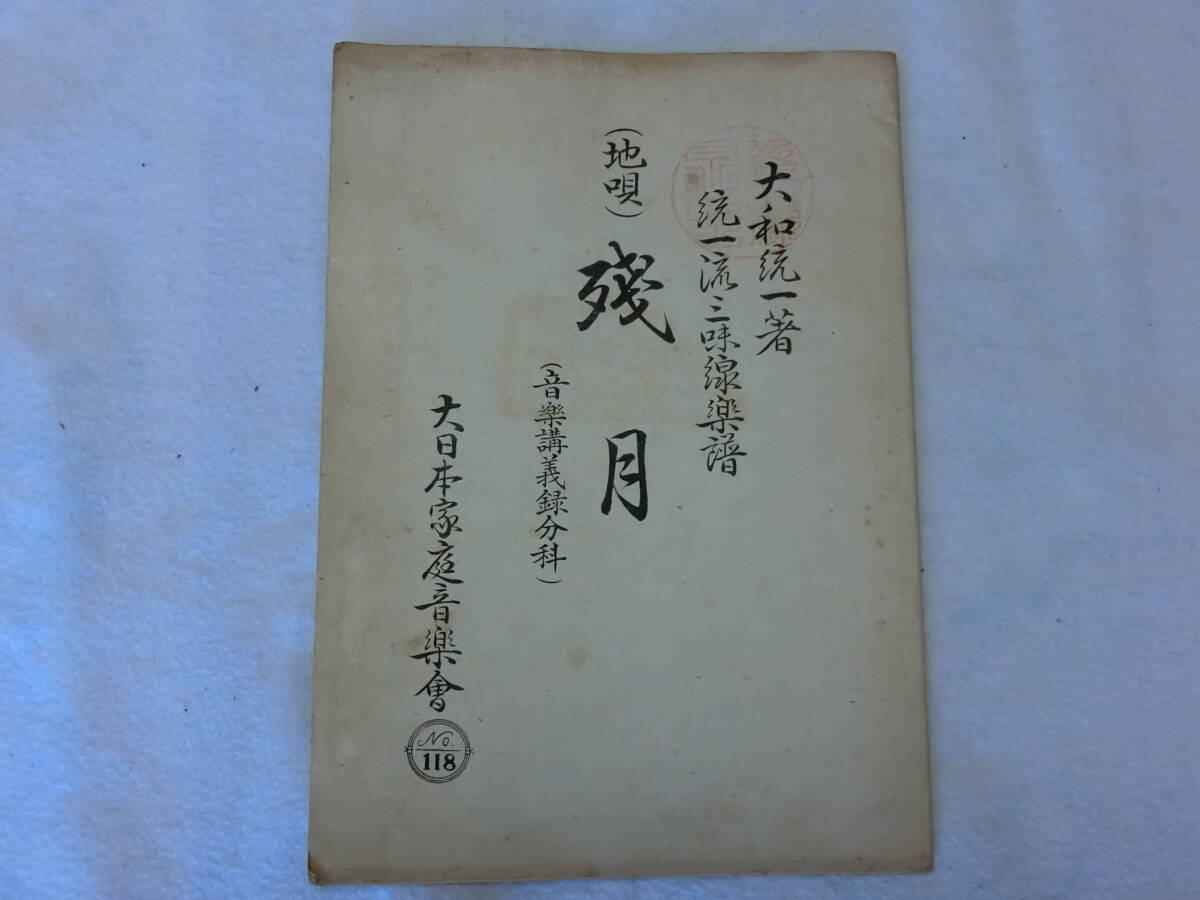 大和統一著
統一流三味線樂譜
(地唄)殘月
(音樂講義録分科)
大日本家庭音樂會
No.
118